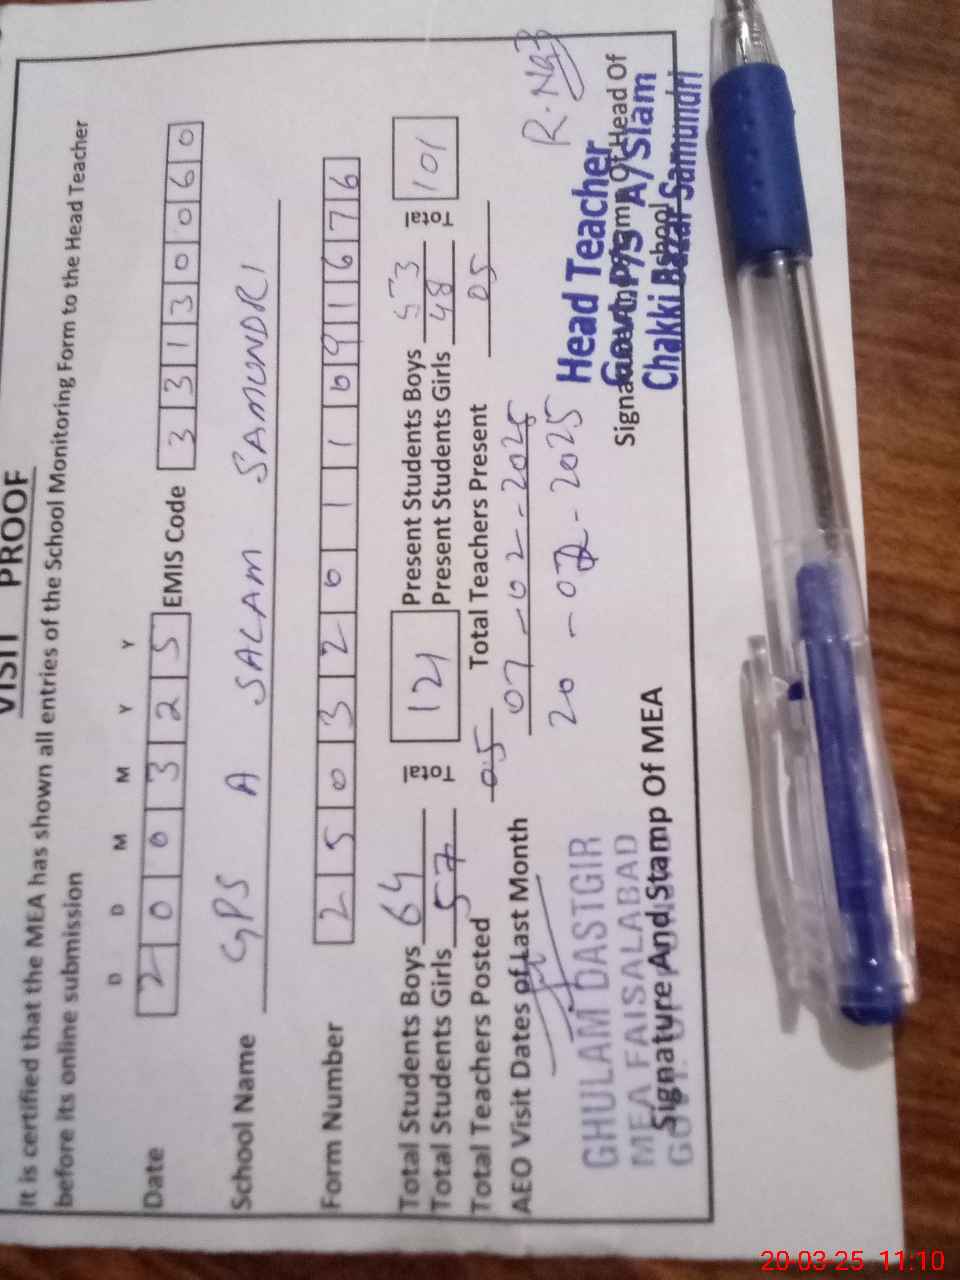 VISIT PROOF
It is certified that the MEA has shown all entries of the School Monitoring Form to the Head Teacher
before its online submission
D D M M Y Y
Date 2 0 0 3 2 5 EMIS Code 3 3 1 3 0 0 6 0
School Name GPS A SALAM SAMUNDRI
Form Number 2 5 0 3 2 0 1 1 0 9 1 6 7 6
Total Students Boys 64 Total 121 Present Students Boys 53 Total 101
Total Students Girls 57 Present Students Girls 48
Total Teachers Posted 05 Total Teachers Present 05
AEO Visit Dates of Last Month 07-02-2025
20-02-2025
GHULAM DASTGIR
MEA FAISALABAD
Signature And Stamp Of MEA
Head Teacher
Govt. P/S A/Slam
Chakki Bazar Samundri
Signature And Stamp Of Head Of
School
20-03-25 11:10